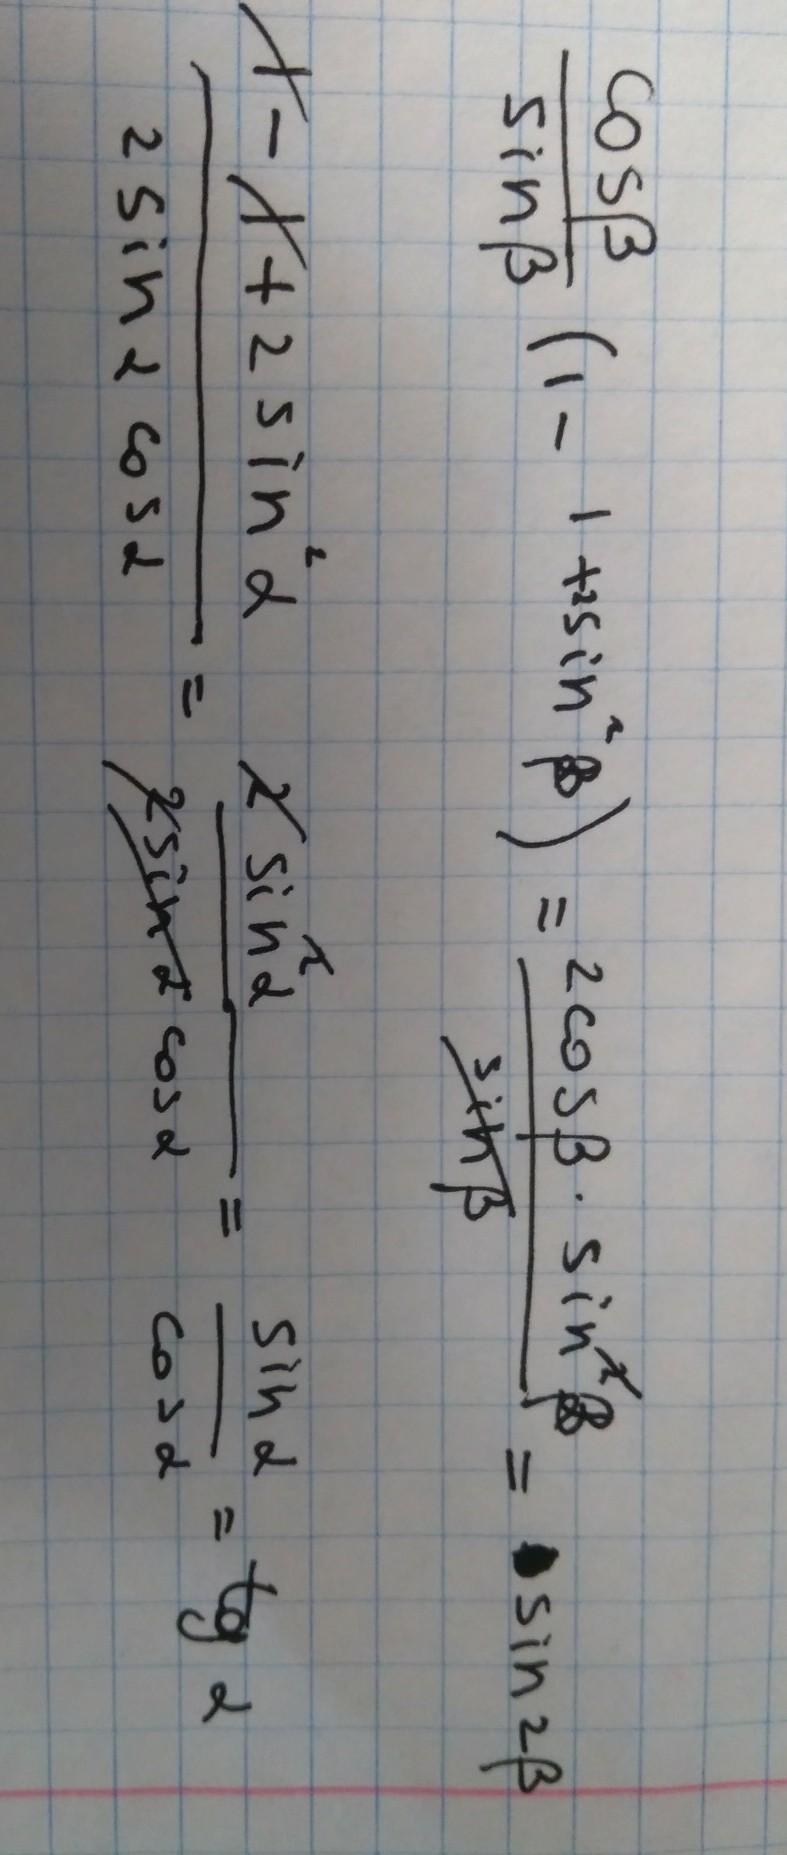 cosβ/sinβ (1 - 1 + 2sin²β) = 2cosβ · sin²β/sinβ = sin2β
1 - 1 + 2sin²α/2sinαcosα = 2sin²α/2sinαcosα = sinα/cosα = tgα